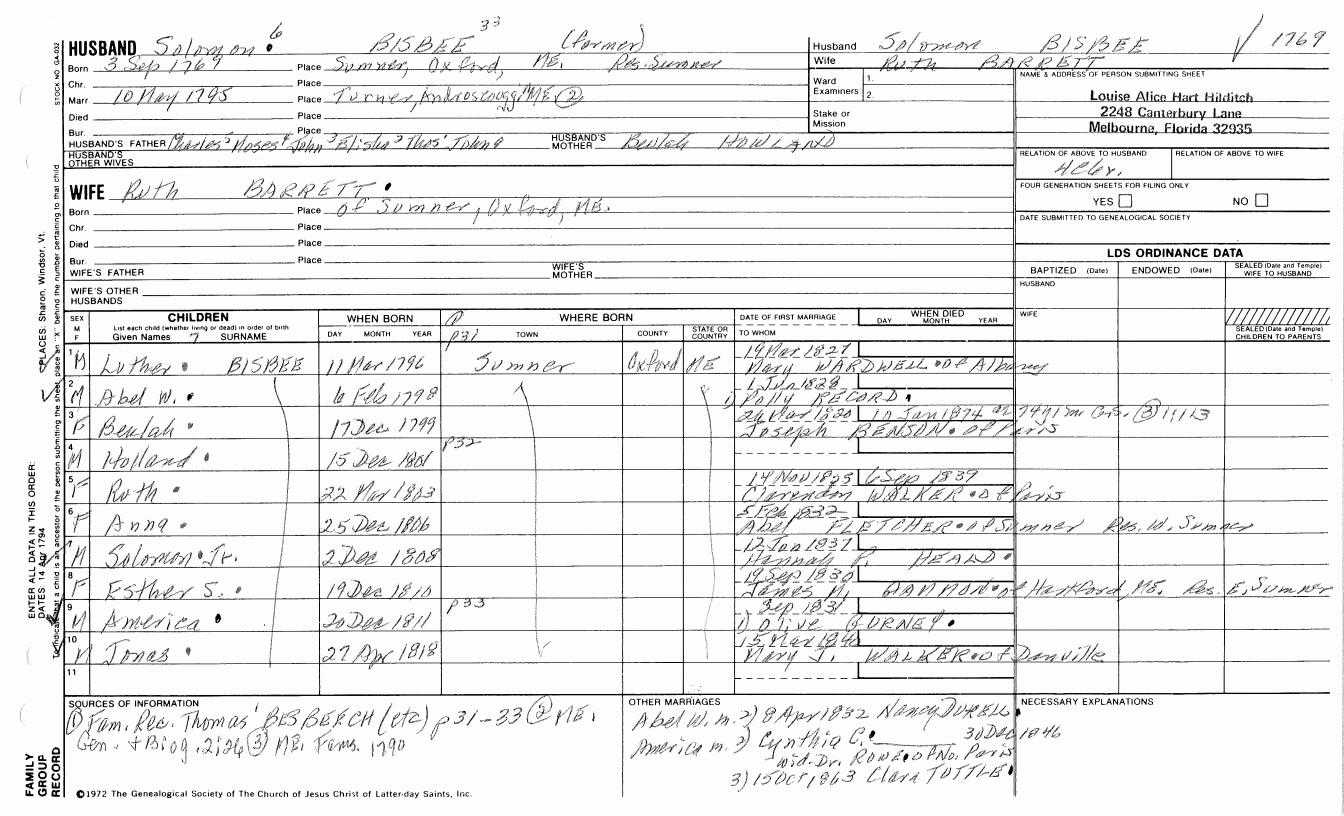 HUSBAND Solomon 6 BISBEE 33 (farmer)
Born 3 Sep 1769 Place Sumner, Oxford, ME. Res. Sumner
Chr. Place
Marr 10 May 1795 Place Turner, Androscogg, ME (2)
Died Place
Bur. Place
HUSBAND'S FATHER Charles5 Moses4 John3 Elisha2 Thos1 HUSBAND'S MOTHER Beulah HOWLAND
HUSBAND'S OTHER WIVES
Husband Solomon BISBEE √ 1769
Wife Ruth BARRETT
Ward Examiners 1. 2.
Stake or Mission
NAME & ADDRESS OF PERSON SUBMITTING SHEET
Louise Alice Hart Hilditch
2248 Canterbury Lane
Melbourne, Florida 32935
RELATION OF ABOVE TO HUSBAND RELATION OF ABOVE TO WIFE
FOUR GENERATION SHEETS FOR FILING ONLY
YES NO
DATE SUBMITTED TO GENEALOGICAL SOCIETY
WIFE Ruth BARRETT •
Born Place of Sumner, Oxford, ME.
Chr. Place
Died Place
Bur. Place
WIFE'S FATHER WIFE'S MOTHER
WIFE'S OTHER HUSBANDS
LDS ORDINANCE DATA
BAPTIZED (Date) ENDOWED (Date) SEALED (Date and Temple) WIFE TO HUSBAND
HUSBAND
WIFE
SEALED (Date and Temple) CHILDREN TO PARENTS
SEX M F CHILDREN WHEN BORN WHERE BORN DATE OF FIRST MARRIAGE WHEN DIED
List each child (whether living or dead) in order of birth
Given Names SURNAME DAY MONTH YEAR p31 TOWN COUNTY STATE OR COUNTRY TO WHOM DAY MONTH YEAR
1 M Luther • BISBEE 11 Mar 1796 Sumner Oxford ME 19 Mar 1827
Mary WARDWELL • of Albany
2 M Abel W. • 6 Feb 1798 1 Jun 1828
1) Polly RECORD •
3 F Beulah • 17 Dec 1799 26 Mar 1820 10 Jan 1874 a 74y 1m G.S. (3) 1;113
Joseph BENSON • of Paris
4 M Holland • 15 Dec 1801 p32
5 F Ruth • 22 Mar 1803 14 Nov 1825 6 Sep 1839
Clarendon WALKER • of Paris
6 F Anna • 25 Dec 1806 5 Feb 1832
Abel FLETCHER • of Sumner Res. W. Sumner
7 M Solomon • Jr. 2 Dec 1808 12 Jan 1837
Hannah P. HEALD •
8 F Esther S. • 19 Dec 1810 19 Sep 1830
James N. DAMMON • of Hartford ME. Res. E. Sumner
9 M America • 20 Dec 1811 p33 Sep 1831
1) Olive GURNEY •
10 M Jonas • 27 Apr 1818 15 Mar 1840
Mary J. WALKER • of Danville
11
SOURCES OF INFORMATION
(1) Fam. Rec. Thomas1 BISBEECH (etc) p31-33 (2) ME.
Gen. + Biog. 2;26 (3) ME. Fams. 1790
OTHER MARRIAGES
Abel W. m. 2) 8 Apr 1832 Nancy DURELL •
America m. 2) Cynthia C. • 30 Dec 1846
wid. Dr. ROWE of No. Paris
3) 15 Oct 1863 Clara TUTTLE •
NECESSARY EXPLANATIONS
©1972 The Genealogical Society of The Church of Jesus Christ of Latter-day Saints, Inc.
STOCK NO. GA-032
FAMILY GROUP RECORD
ENTER ALL DATA IN THIS ORDER:
DATES 14 Apr 1794
PLACES. Sharon, Windsor, Vt.
To indicate that a child is an ancestor of the person submitting the sheet, place an "x" behind the number pertaining to that child